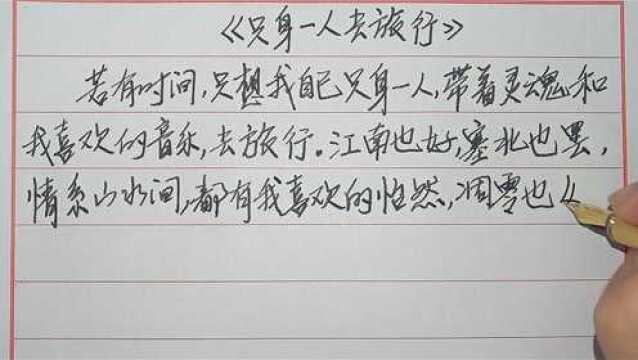 《只身一人去旅行》
若有时间,只想我自己只身一人,带着灵魂和
我喜欢的音乐,去旅行。江南也好,塞北也罢,
情系山水间,都有我喜欢的怡然,凋零也